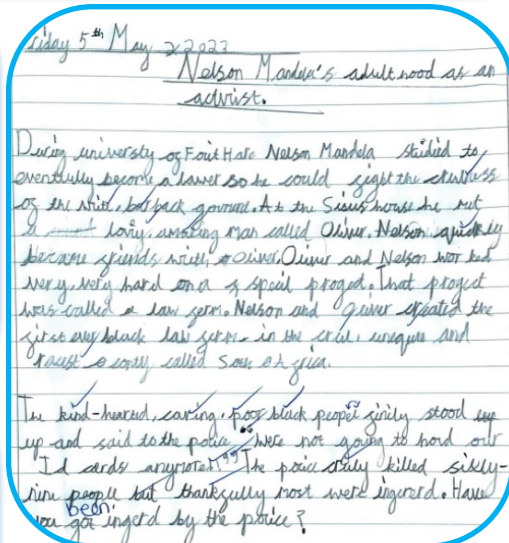 riday 5th May 2023
Nelson Mandela's adulthood as an
activist.
During university of Fout Hare Nelson Mandela studied to
eventully become a lawer so he could fight the
of the . At the Sisus house he met
a loviy, amazing man called Oliver. Nelson quickly
became friends with Oliver. Oliver and Nelson worked
very, very hard on a speil proged. That proget
was called a law ferm. Nelson and Oliver created the
first ever black law ferm in the cruel, uneque and
racist called South Africa.
The kind-hearted, caring, poor black people finily stood up
up and said to the police "were not going to hord our
Id cards anymore!!" The police cruly killed sixty-
nine people but thankfully most were ingererd. Have
you got been ingerd by the police?